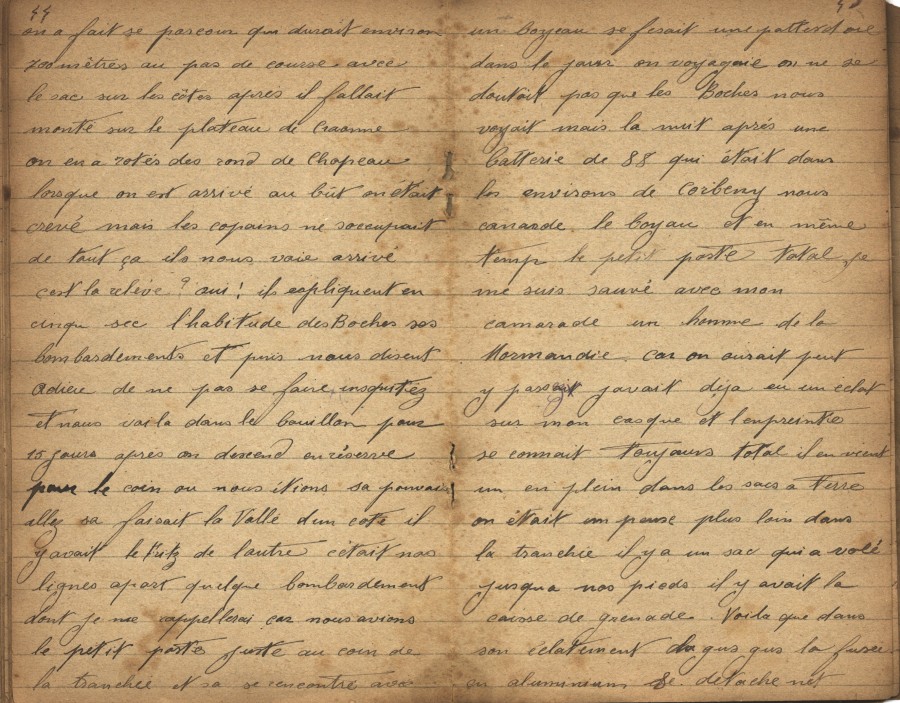 44
on a fait se parcour qui durait environ
700 mètres au pas de course avec
le sac sur les côtes après il fallait
monté sur le plateau de Craonne
on en a rotés des rond de Chapeau
lorsque on est arrivé au bût on était
crevé mais les copains ne soccupait
de tout ça ils nous voie arrivé
c'est la relève ? oui ! ils expliquent en
cinqu sec l'habitude des Boches ses
bombardements et puis nous disent
adieu de ne pas se faire
et nous voila dans le bouillon pour
15 jours après on descend en réserve
pour le coin ou nous étions sa pouvait
allez sa faisait la Vallé d'un coté il
y avait le Fritz de l'autre c'était nos
lignes apart quelque bombardement
dont je me rappellerai car nous avions
le petit poste juste au coin de
la tranchée et sa se rencontre avec
un boyeau se fesait une patte d'oie
dans le jour on voyageie on ne se
doutait pas que les Boches nous
voyait mais la nuit après une
batterie de 88 qui était dans
les environs de Corbeny nous
canarde le boyau et en même
temp le petit poste total je
me suis sauvé avec mon
camarade un homme de la
Normandie car on aurait peut
y javait déja eu un éclat
sur mon casque et l'enpreinte
se connait toujours total il en vient
un en plein dans les sacs a terre
on était un peux plus loin dans
la tranchée il y a un sac qui a volé
jusqua nos pieds il y avait la
caisse de grenade. Voila que dans
son éclatement la fusée
en aluminium se détache net